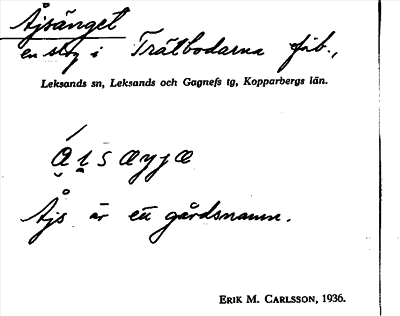 Åjsänget
en slog i Trätbodarna fäb.,
Leksands sn, Leksands och Gagnefs tg, Kopparbergs län.
Åjs är ett gårdsnamn.
ERIK M. CARLSSON, 1936.